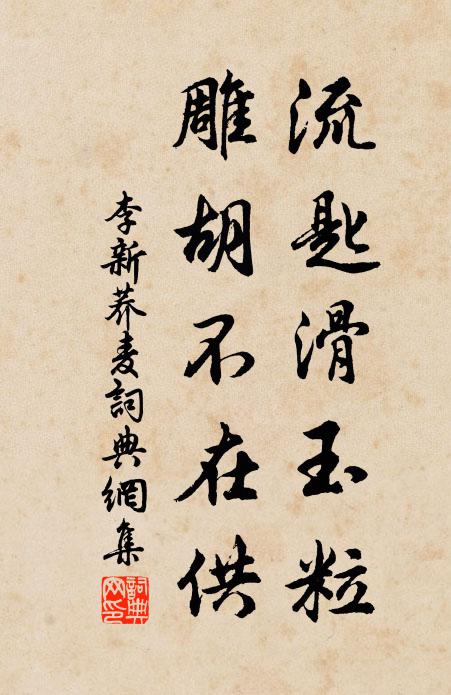 流匙滑玉粒
雕胡不在供
李新荞麦詞典網集
詞典網印